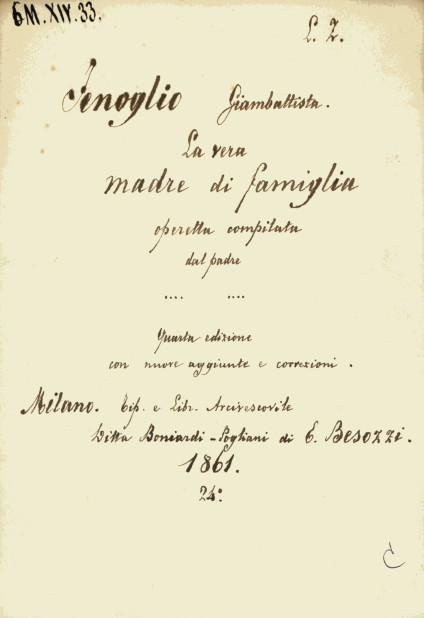 6M.XIV.33.
L. 2.
Fenoglio Giambattista.
La vera
madre di famiglia
operetta compilata
dal padre
.... ....
Quarta edizione
con nuove aggiunte e correzioni.
Milano. Tip. e Libr. Arcivescovile
Ditta Boniardi-Pogliani di E. Besozzi.
1861.
24°
C